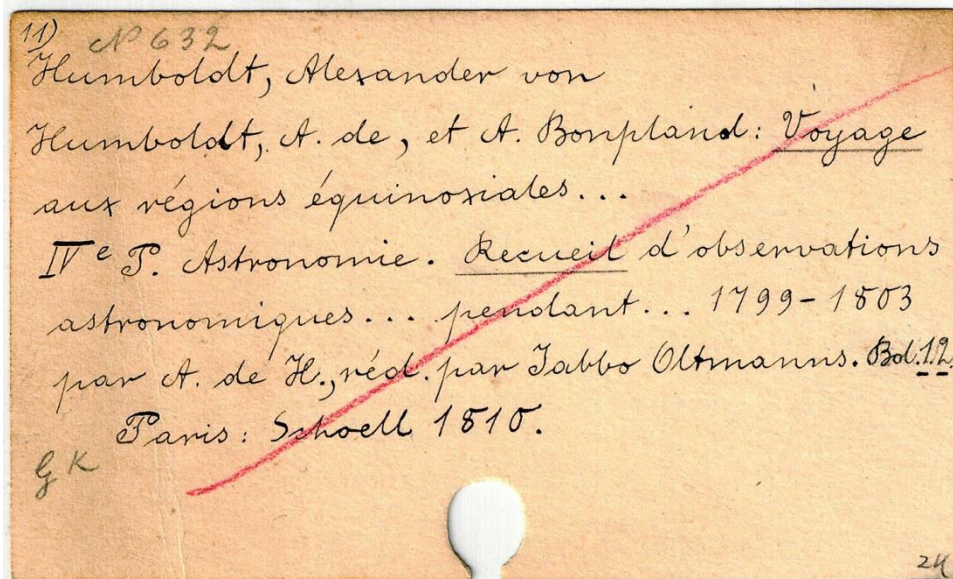 11)
N° 632
Humboldt, Alexander von
Humboldt, A. de, et A. Bonpland: Voyage
aux régions équinoxiales...
IVe P. Astronomie. Recueil d'observations
astronomiques... pendant... 1799-1803
par A. de H., réd. par Jabbo Oltmanns. Bd. 1.2.
Paris: Schoell 1810.
GK